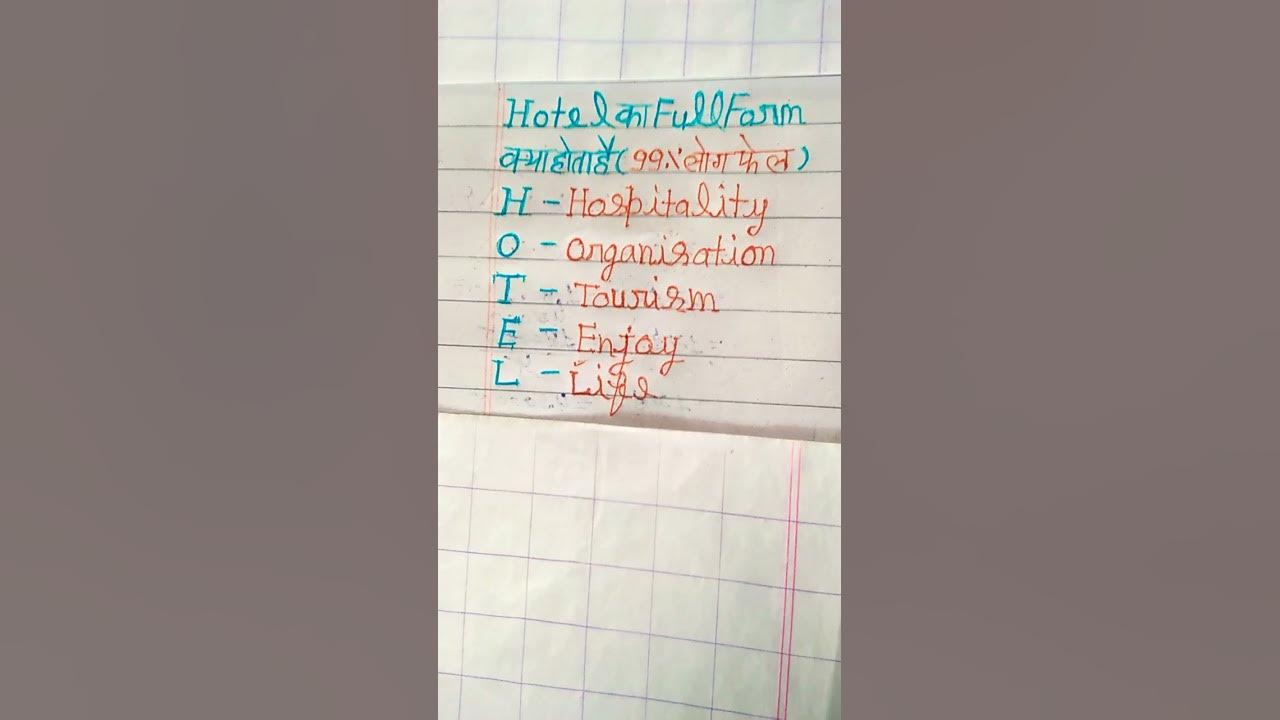 Hotel का Full Form
क्या होता है ( 99% लोग फेल )
H - Hospitality
O - Organisation
T - Tourism
E - Enjoy
L - Life